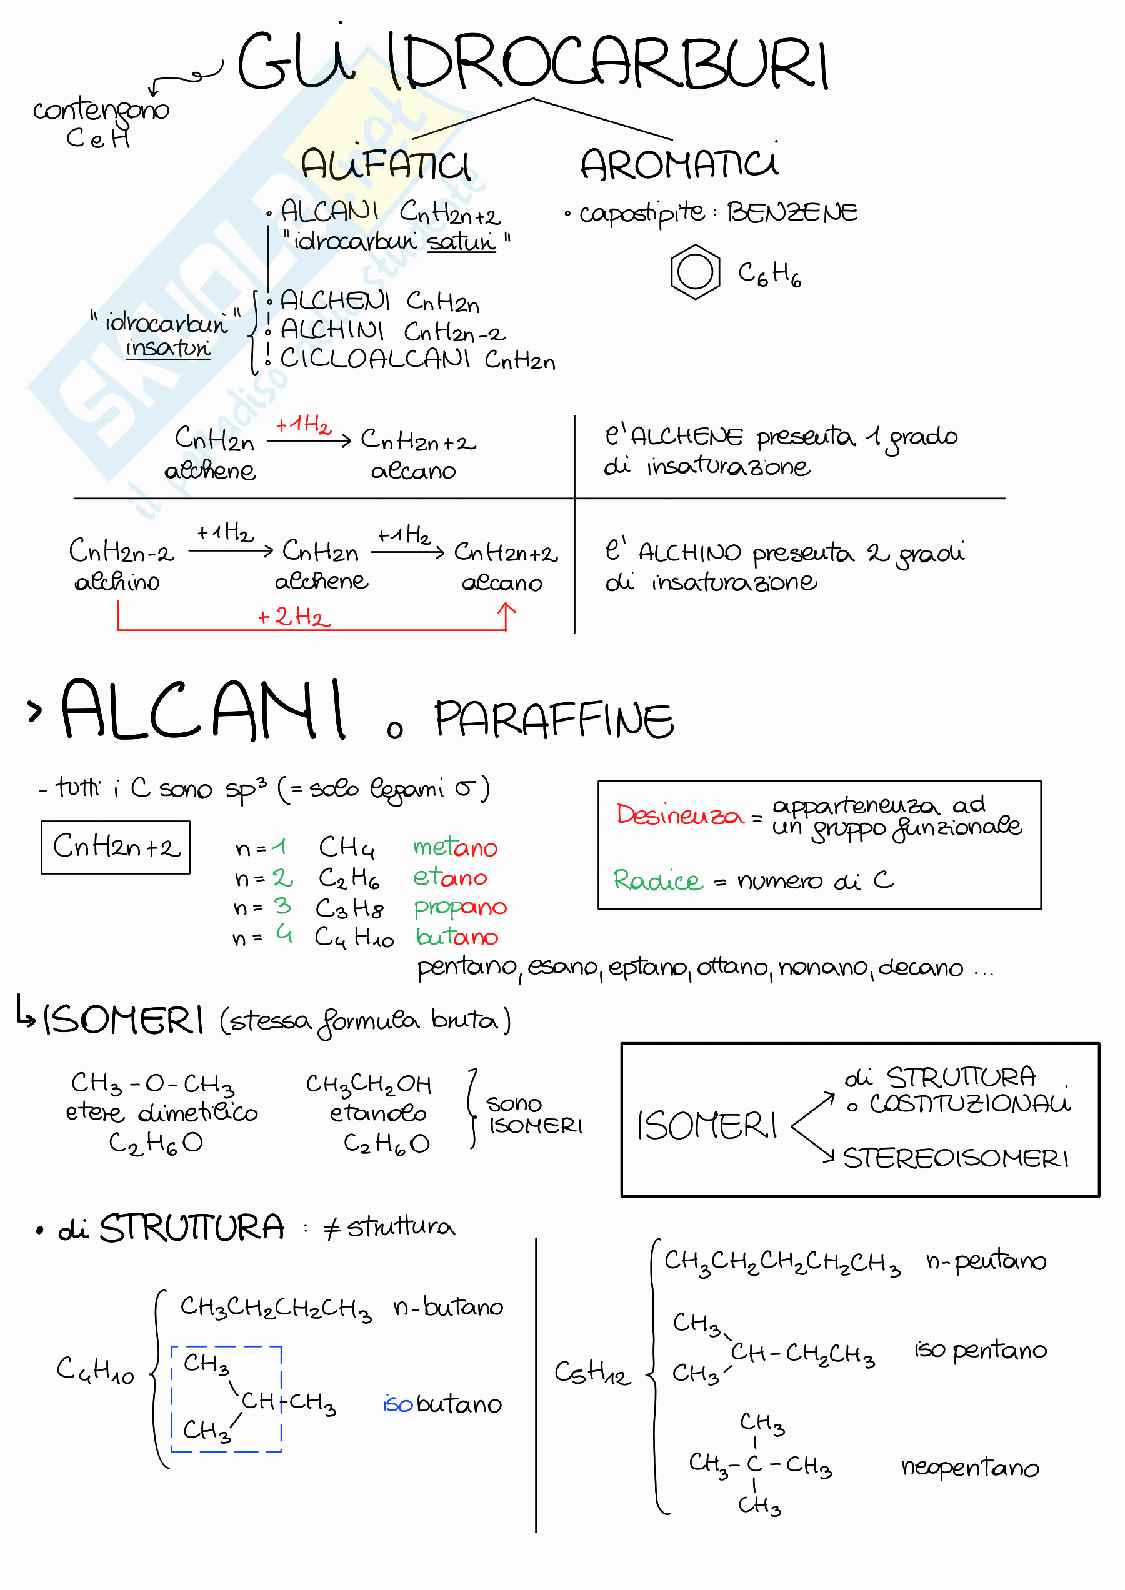 GLI IDROCARBURI
contengono
C e H
ALIFATICI
AROMATICI
• ALCANI CnH2n+2
"idrocarburi saturi"
• capostipite: BENZENE
C6H6
"idrocarburi"
insaturi
• ALCHENI CnH2n
• ALCHINI CnH2n-2
• CICLOALCANI CnH2n
SKUOLA.net
il paradiso dello studente
CnH2n +1H2 → CnH2n+2
alchene alcano
l'ALCHENE presenta 1 grado
di insaturazione
CnH2n-2 +1H2 → CnH2n +1H2 → CnH2n+2
alchino alchene alcano
+2H2
l'ALCHINO presenta 2 gradi
di insaturazione
> ALCANI o PARAFFINE
- tutti i C sono sp³ (= solo legami σ)
CnH2n+2
n=1 CH4 metano
n=2 C2H6 etano
n=3 C3H8 propano
n=4 C4H10 butano
pentano, esano, eptano, ottano, nonano, decano ...
Desinenza = appartenenza ad
un gruppo funzionale
Radice = numero di C
↳ ISOMERI (stessa formula bruta)
CH3-O-CH3 CH3CH2OH
etere dimetilico etanolo
C2H6O C2H6O
sono
ISOMERI
ISOMERI
di STRUTTURA
o COSTITUZIONALI
STEREOISOMERI
• di STRUTTURA : ≠ struttura
C4H10
CH3CH2CH2CH3 n-butano
CH3
CH-CH3 isobutano
CH3
C5H12
CH3CH2CH2CH2CH3 n-pentano
CH3
CH-CH2CH3 isopentano
CH3
CH3
CH3-C-CH3 neopentano
CH3